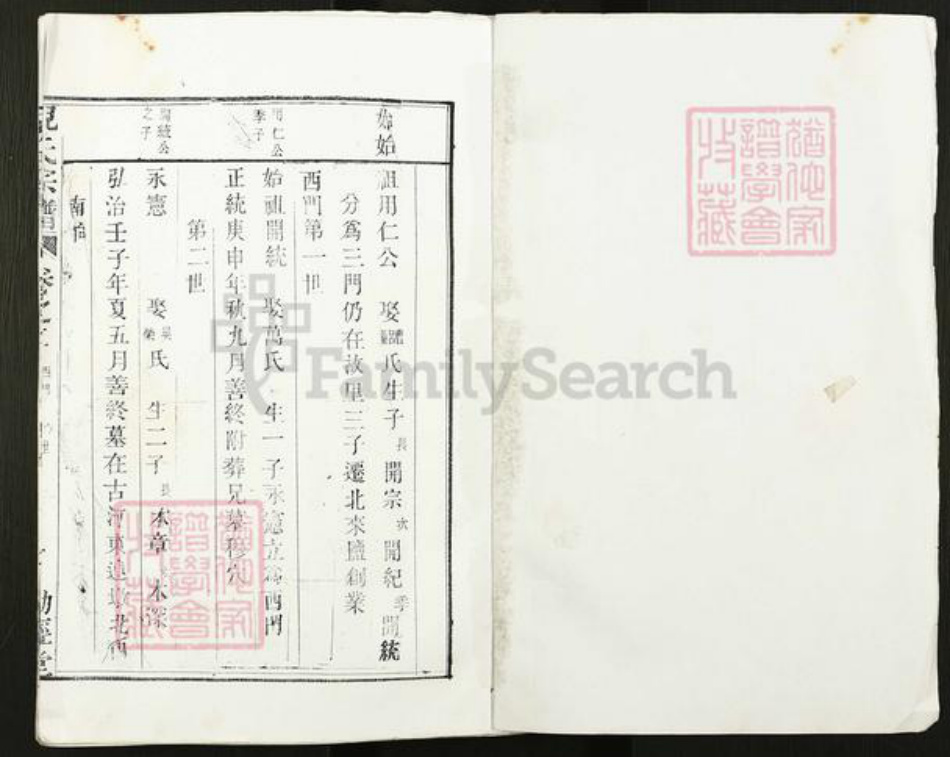 始
始祖用仁公 娶氏生子長開宗次開紀季開統
分爲三門仍在故里三子遷北來鹽創業
西門第一世
用仁公季子
始祖開統 娶萬氏 生一子永憲立爲西門
正統庚申年秋九月善終附葬兄墓穆穴
第二世
開統公之子
永憲 娶吴氏 生二子長本章 本深
弘治壬子年夏五月善終墓在古河東邊墩北西
南
氏宗譜 卷之 西門
勤
FamilySearch
猶他家譜學會收藏
猶他家譜學會收藏